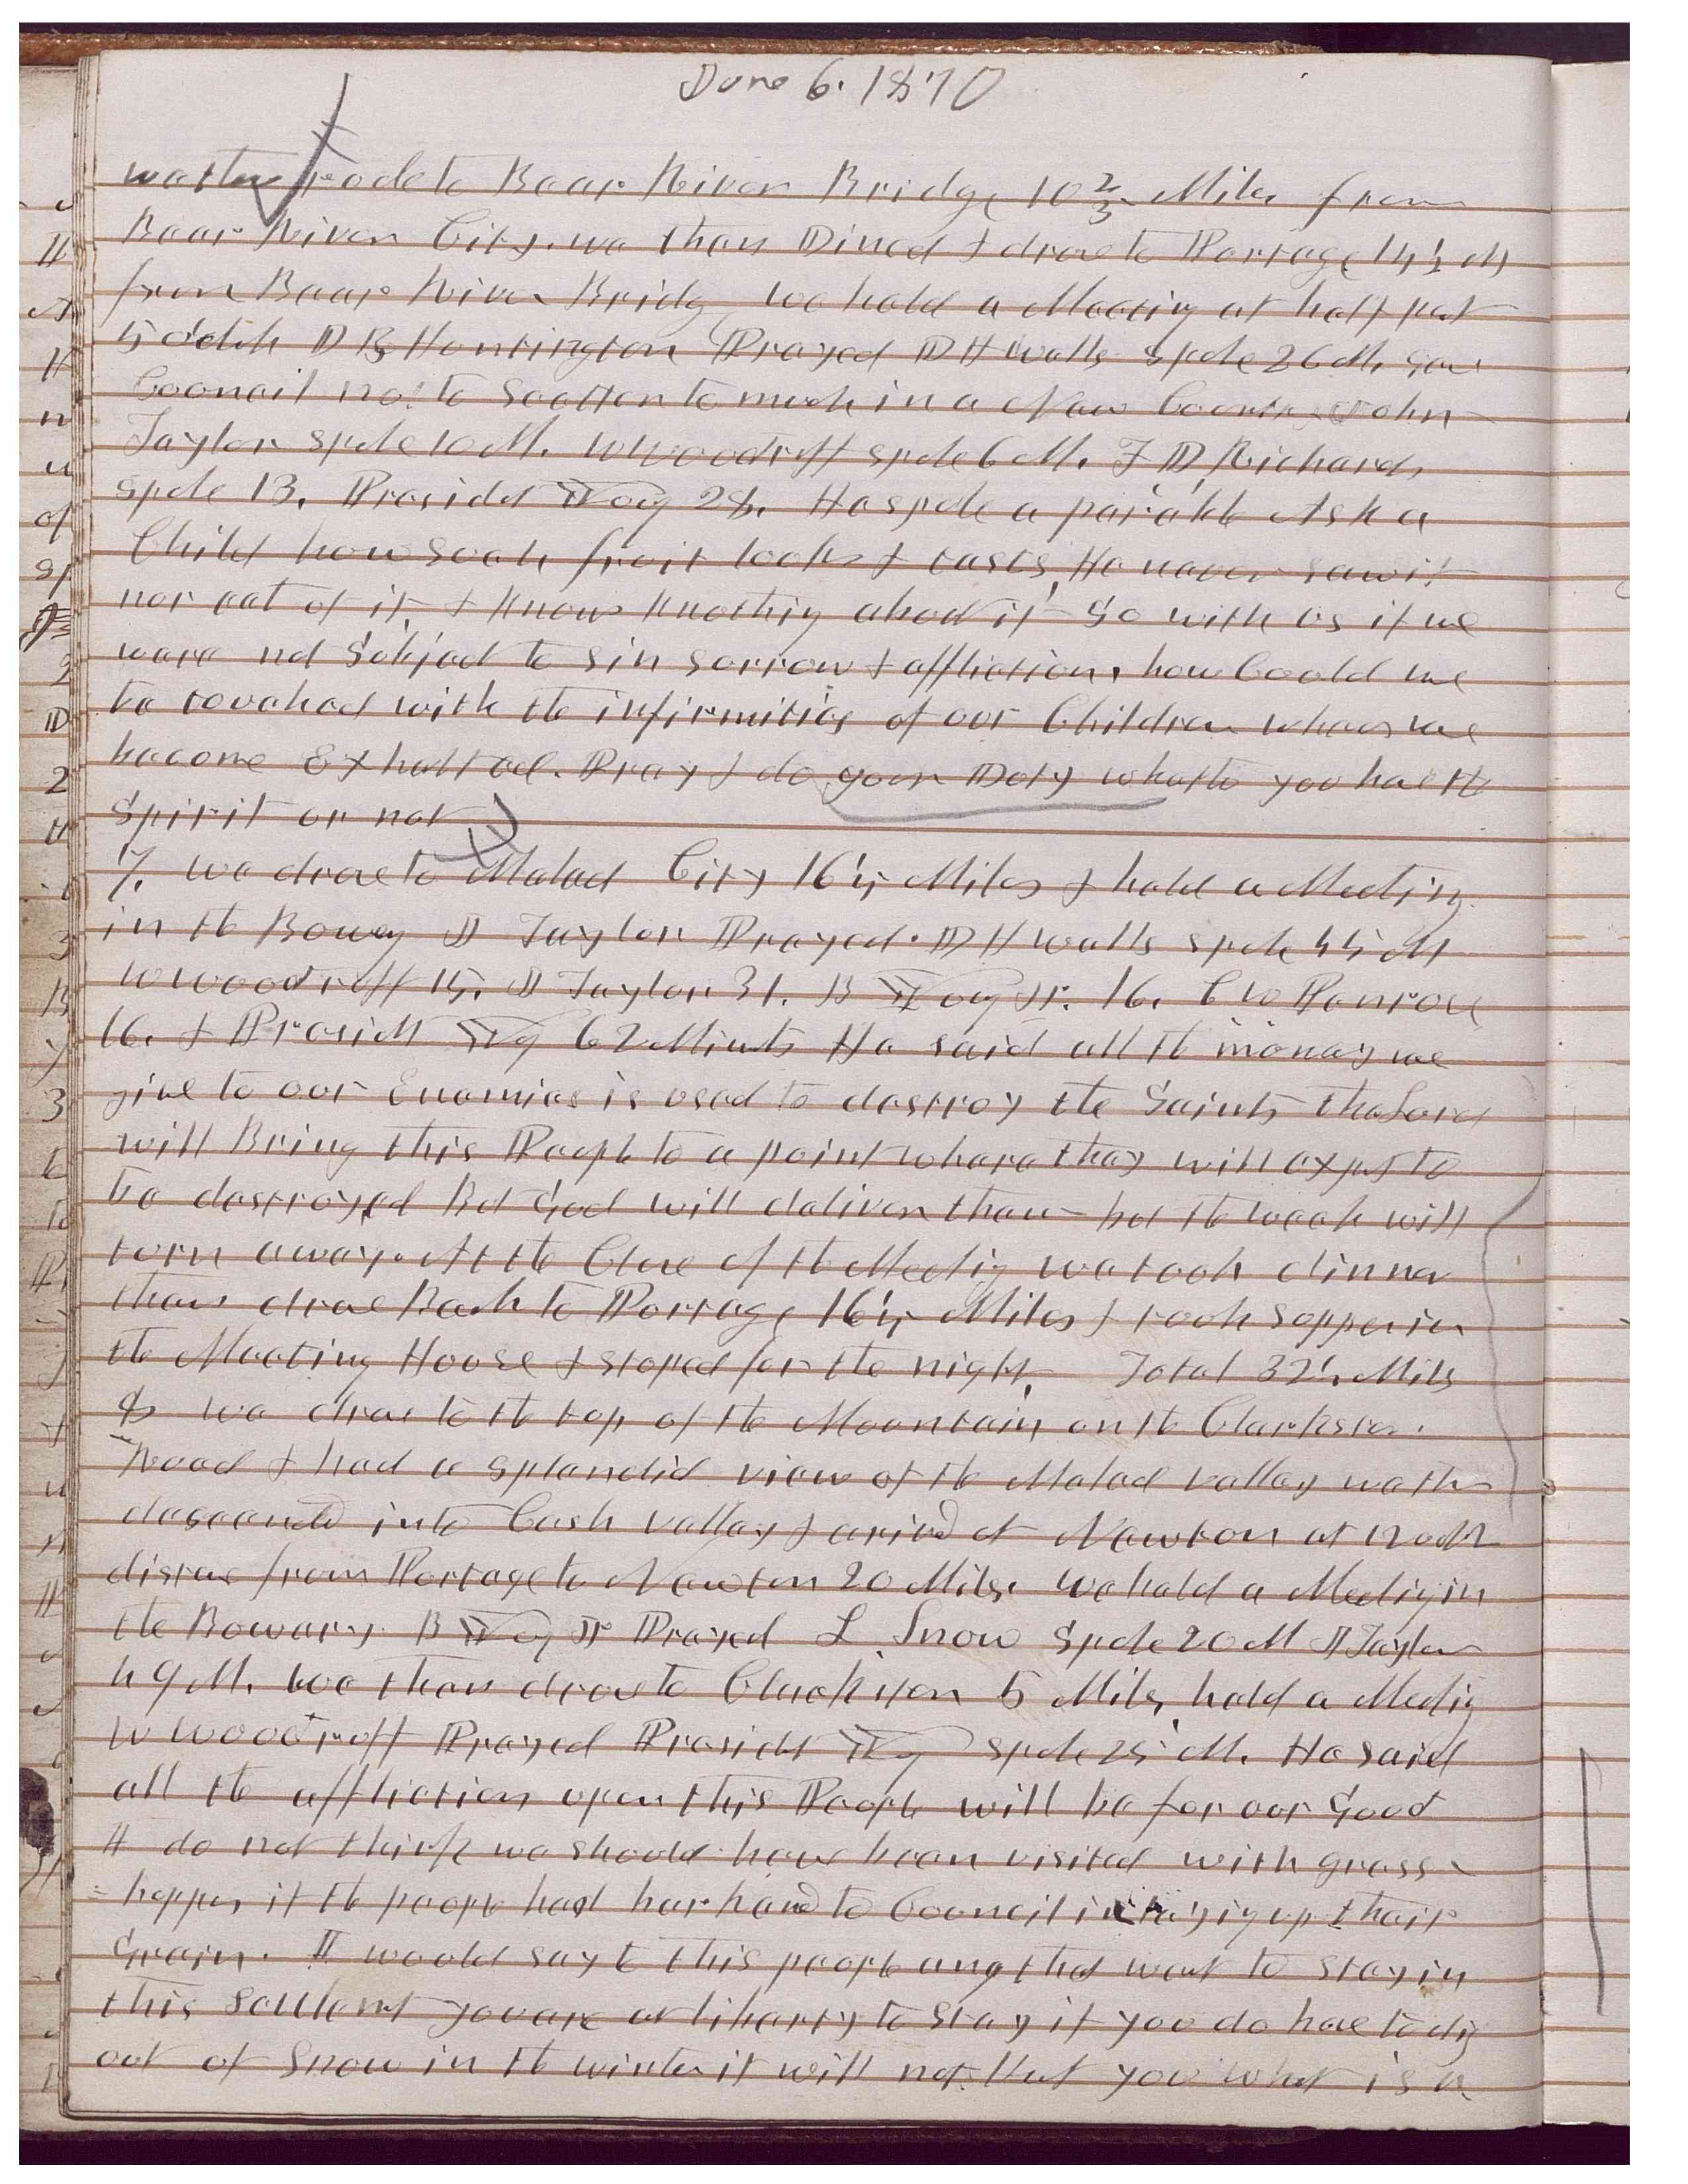 June 6. 1870
we then rode to Bear River Bridge 10 2/3 Miles from
Bear River City. we then Dined & drove to Portage 14½ M
from Bear River Bridg we held a Meeting at half past
5 oclok D B Huntington Prayed D H Wells spoke 26 M, gave
Council not to Scatter to much in a New Country John
Taylor spoke 10 M. W Woodruff spoke 6 M. F D Richards
spoke 13. Presidet Young 28. He spoke a parable Ask a
Child how such fruit looks & tasts, He never saw it
nor eat of it, & knows knothing about it So with us if we
were not Subject to sin sorrow & affliction, how Could we
be touched with the infirmities of our Children when we
become Exhalted. Pray & do your Duty whether you have the
Spirit or not
7. we drove to Malad City 16¼ Miles & held a Meeting
in the Bowery J Taylor Prayed. D H Wells spoke 45 M
W Woodruff 15, J Taylor 31. B Young Jr. 16. C W Penrose
16. & Presidt Young 62 Minuts He said all the money we
give to our Enemies is used to destroy the Saints The Lord
will Bring this People to a point where they will expect to
be destroyed But God will deliver them but the weak will
turn away. At the Close of the Meetig we took dinner
then drove Back to Portage 16¼ Miles & took Supper in
the Meeting House & stoped for the night, Total 32½ Mils
8 we drove to the top of the Mountain on the Clarkston
Road & had a splendid view of the Malad valley we then
descended into Cash valley & arived at Newton at 12 oclk
distance from Portage to Newton 20 Mils. We held a Meetig in
the Bowery. B Young Jr Prayed L Snow Spoke 20 M J Taylor
49 M. We then drove to Clarkston 5 Mils, held a Meetig
W Woodruff Prayed Presidet Young spoke 25 M. He said
all the affliction upon this People will be for our Good
I do not think we should have been visited with grass
=hoppers if the people had harkened to Council in laying up their
Grain. I would say to this people any that want to stay in
this Settlement you are at liberty to Stay if you do have to dig
out of Snow in the winter it will not Hurt you what is a